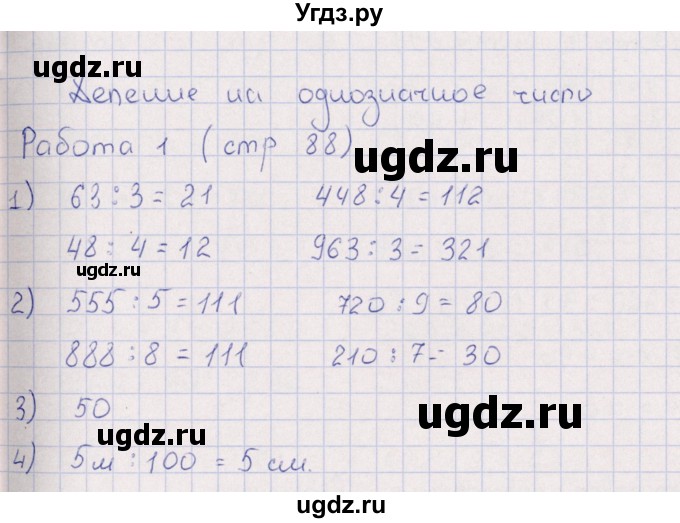 Угдз.ру
ugdz.ru
Деление на однозначное число
Работа 1 (стр 88)
ugdz.ru
1) 63 : 3 = 21 448 : 4 = 112
48 : 4 = 12 963 : 3 = 321
ugdz.ru
2) 555 : 5 = 111 720 : 9 = 80
ugdz.ru
888 : 8 = 111 210 : 7 = 30
3) 50
ugdz.ru
ugdz.ru
4) 5 м : 100 = 5 см.
ugdz.ru